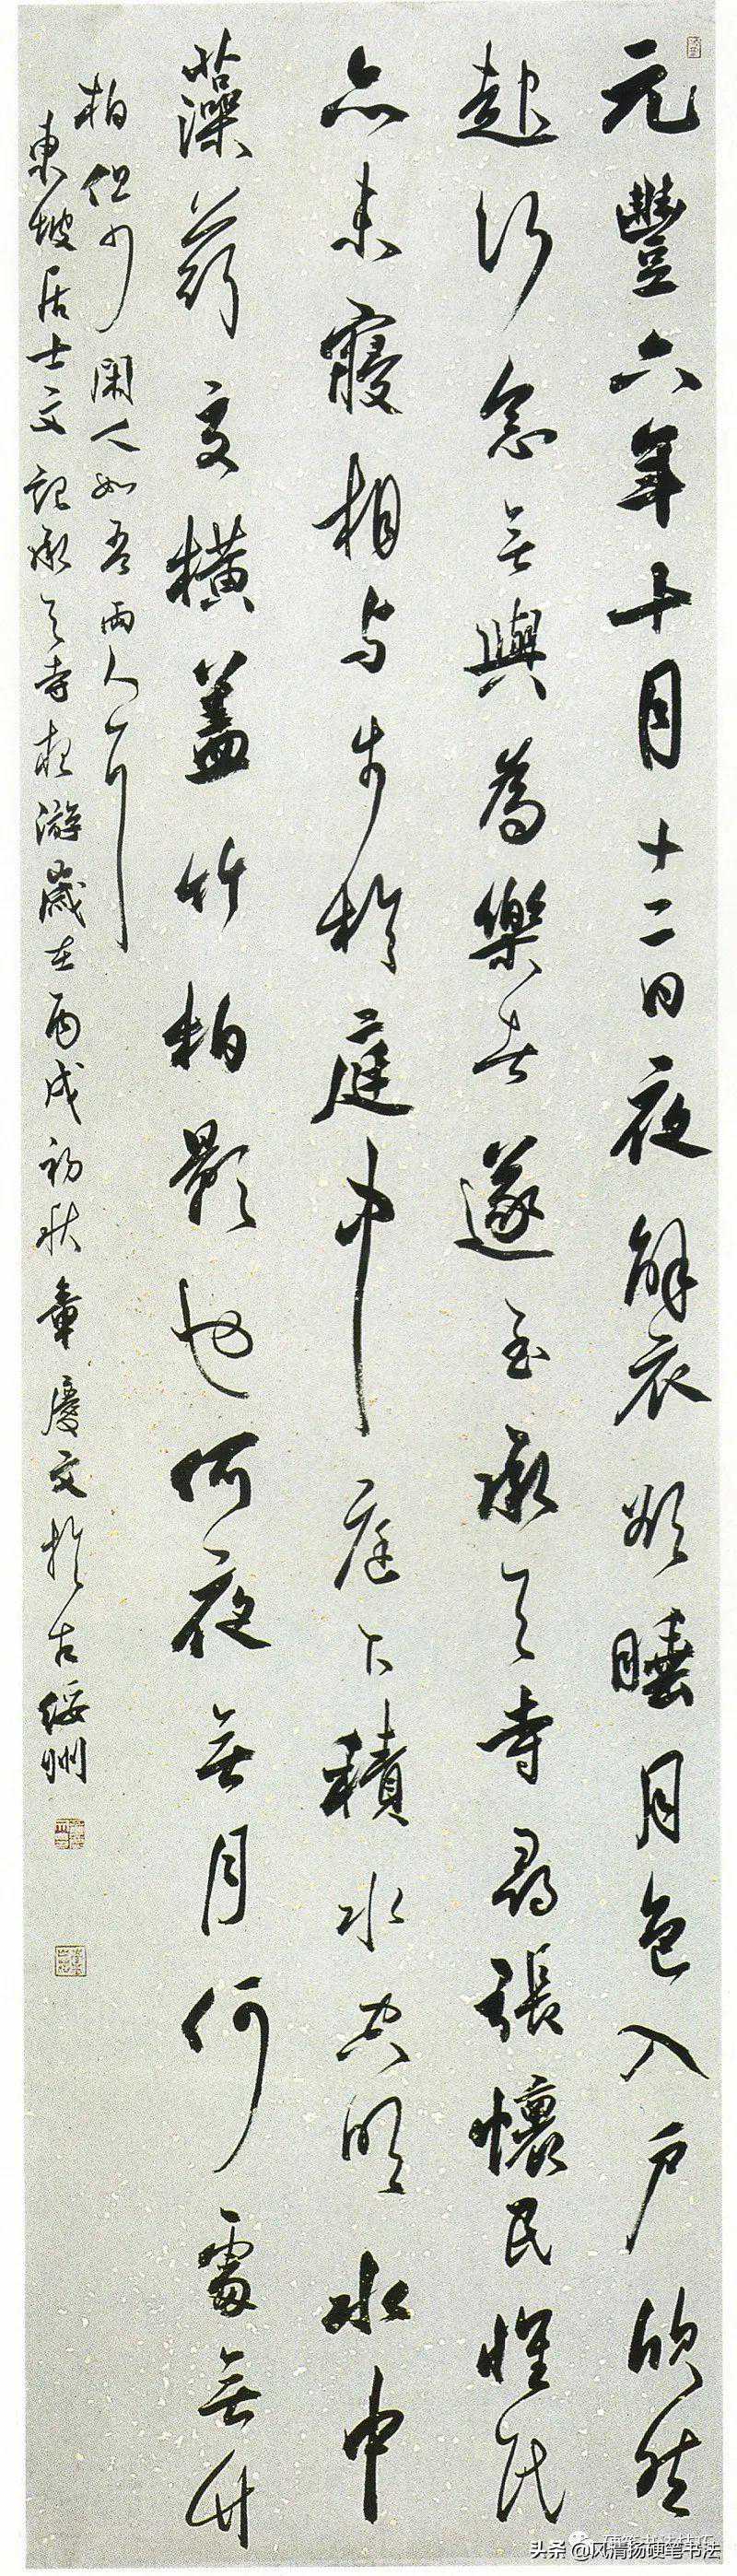 元豐六年十月十二日夜解衣欲睡月色入戶欣然
起行念无與為樂者遂至承天寺尋張懷民懷民
亦未寢相与步於庭中庭下積水空明水中
藻荇交橫蓋竹柏影也何夜無月何處無竹
柏但少閑人如吾兩人耳
東坡居士文記承天寺夜游歲在丙戌初秋章慶文於古綏州
头条 @风清扬硬笔书法